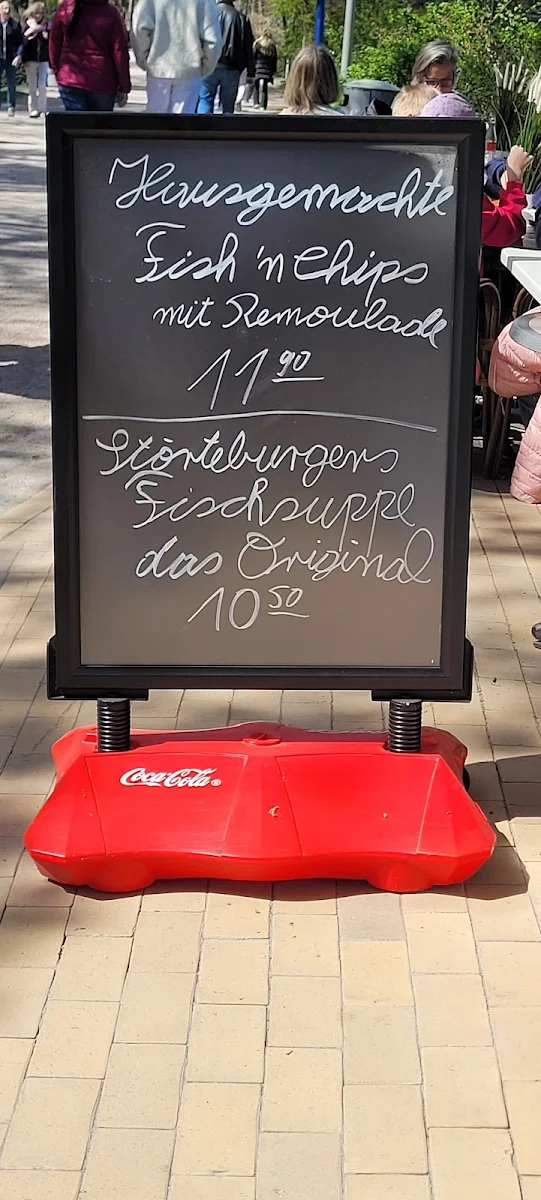 Hausgemachte
Fish 'n Chips
mit Remoulade
11 90
Störteburgers
Fischsuppe
das Original
10 50
Coca-Cola®